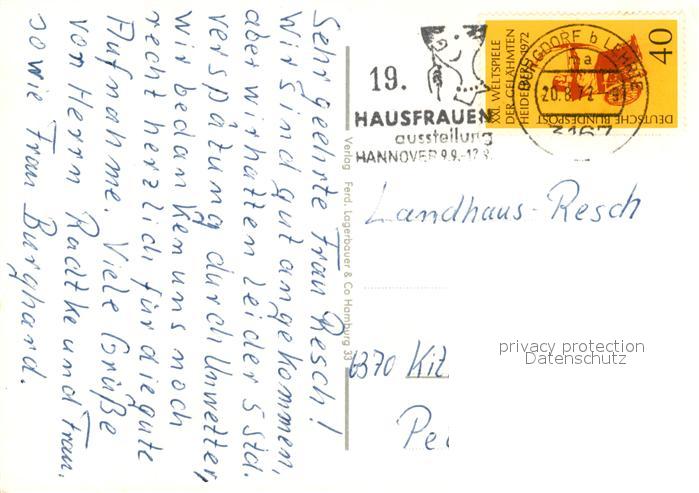 Sehr geehrte Frau Resch!
Wir sind gut angekommen,
aber wir hatten leider 5 Std.
verspätung durch Unwetter,
wir bedanken uns noch
recht herzlich für die gute
Aufnahme. Viele Grüße
von Herrn Radtke und Frau.
sowie Frau Burghard.
Verlag Ferd. Lagerbauer & Co Hamburg 33
19.
HAUSFRAUEN
ausstellung
HANNOVER 9.9.-17.9.
BURGDORF b LEHRTE
ma
20.8.72
3167
XXI. WELTSPIELE
DER GELÄHMTEN
HEIDELBERG 1972
DEUTSCHE BUNDESPOST
40
Landhaus-Resch
6370 Kit
Pe
privacy protection
Datenschutz